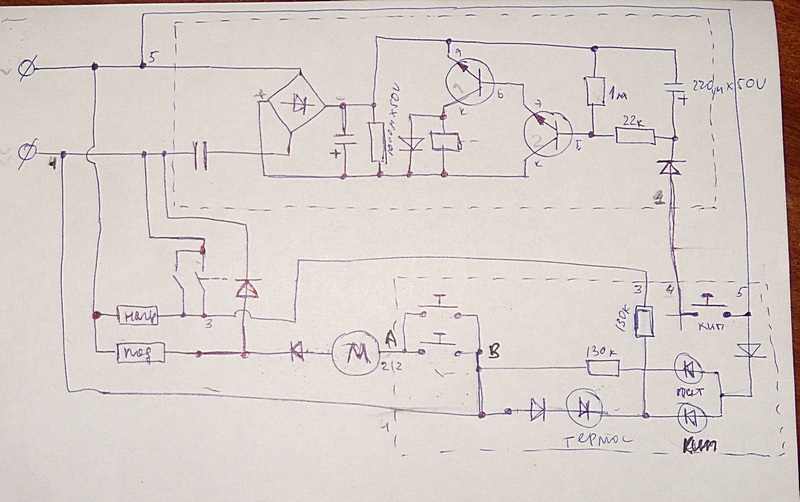 5
+
-
+
1000μ×50V
э
1
б
к
э
2
б
к
1м
22к
220μ×50V
+
4
1
3
4
5
нагр
3
130к
кип
под
М
А
2/2
В
130к
1
термос
кип